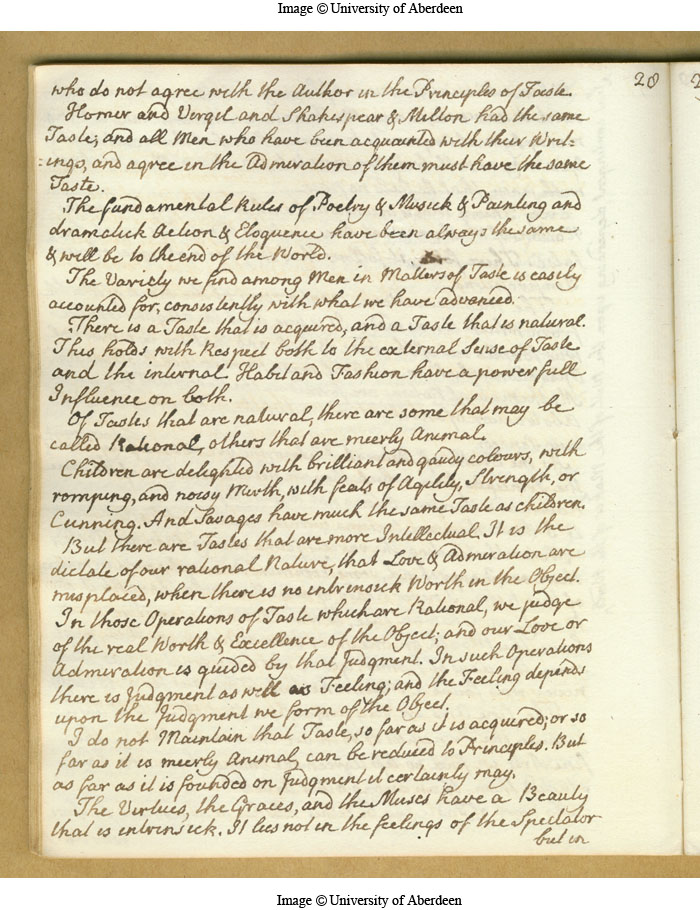 Image © University of Aberdeen
20
who do not agree with the Author in the Principles of Taste.
Homer and Vergil and Shakespear & Milton had the same
Taste; and all Men who have been acquainted with their Writ=
=ings, and agree in the Admiration of them must have the same
Taste.
The fundamental Rules of Poetry & Musick & Painting and
dramatick Action & Eloquence have been always the same
& will be to the end of the World.
The Variety we find among Men in Matters of Taste is easily
accounted for, consistently with what we have advanced.
There is a Taste that is acquired, and a Taste that is natural.
This holds with Respect both to the external Sense of Taste
and the internal. Habit and Fashion have a powerfull
Influence on both.
Of Tastes that are natural, there are some that may be
called Rational, others that are meerly Animal.
Children are delighted with brilliant and gaudy colours, with
romping, and noisy Mirth, with feats of Agility, Strength, or
Cunning. And Savages have much the same Taste as children.
But there are Tastes that are more Intellectual. It is the
dictate of our rational Nature, that Love & Admiration are
misplaced, when there is no intrinsick Worth in the Object.
In those Operations of Taste which are Rational, we judge
of the real Worth & Excellence of the Object; and our Love or
Admiration is guided by that Judgment. In such Operations
there is Judgment as well as Feeling; and the Feeling depends
upon the Judgment we form of the Object.
I do not Maintain that Taste, so far as it is acquired, or so
far as it is meerly Animal can be reduced to Principles. But
as far as it is founded on Judgment it certainly may.
The Virtues, the Graces, and the Muses have a Beauty
that is intrinsick. It lies not in the feelings of the Spectator
but in
Image © University of Aberdeen